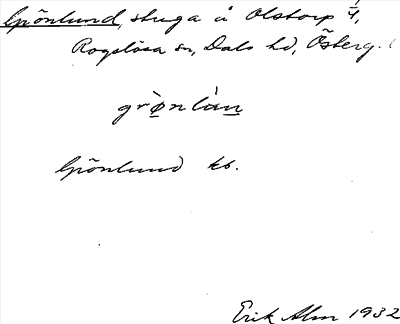 Grönlund, stuga å Olstorp 4/1,
Rogslösa sn, Dals hd, Österg.
grønlan
Grönlund kb.
Erik Alm 1932